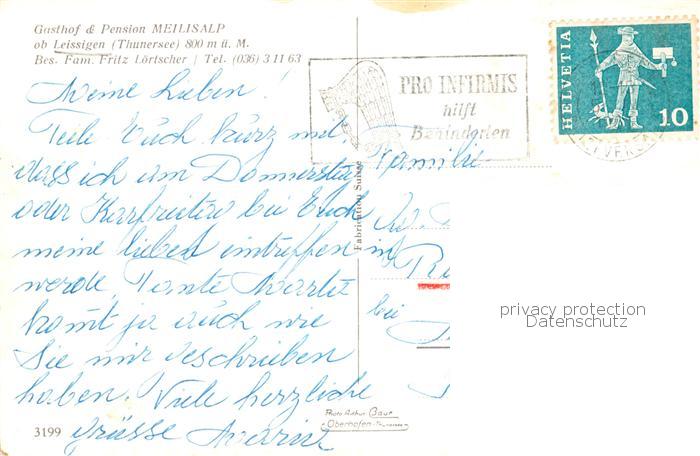 Gasthof & Pension MEILISALP
ob Leissigen (Thunersee) 800 m ü. M.
Bes. Fam. Fritz Lörtscher | Tel. (036) 3 11 63
PRO INFIRMIS
hilft
Behinderten
HELVETIA
10
Meine Lieben!
Teile Euch kurz mit
dass ich am Donnerstag
oder Karfreitag bei Euch
meine lieben eintreffen
werde Tante
komt ja auch wie
Sie mir geschrieben
haben. Viele herzliche
grüsse
Familie
in
bei
Fabrication Suisse
privacy protection
Datenschutz
Photo Arthur Baur
Oberhofen-Thunersee
3199